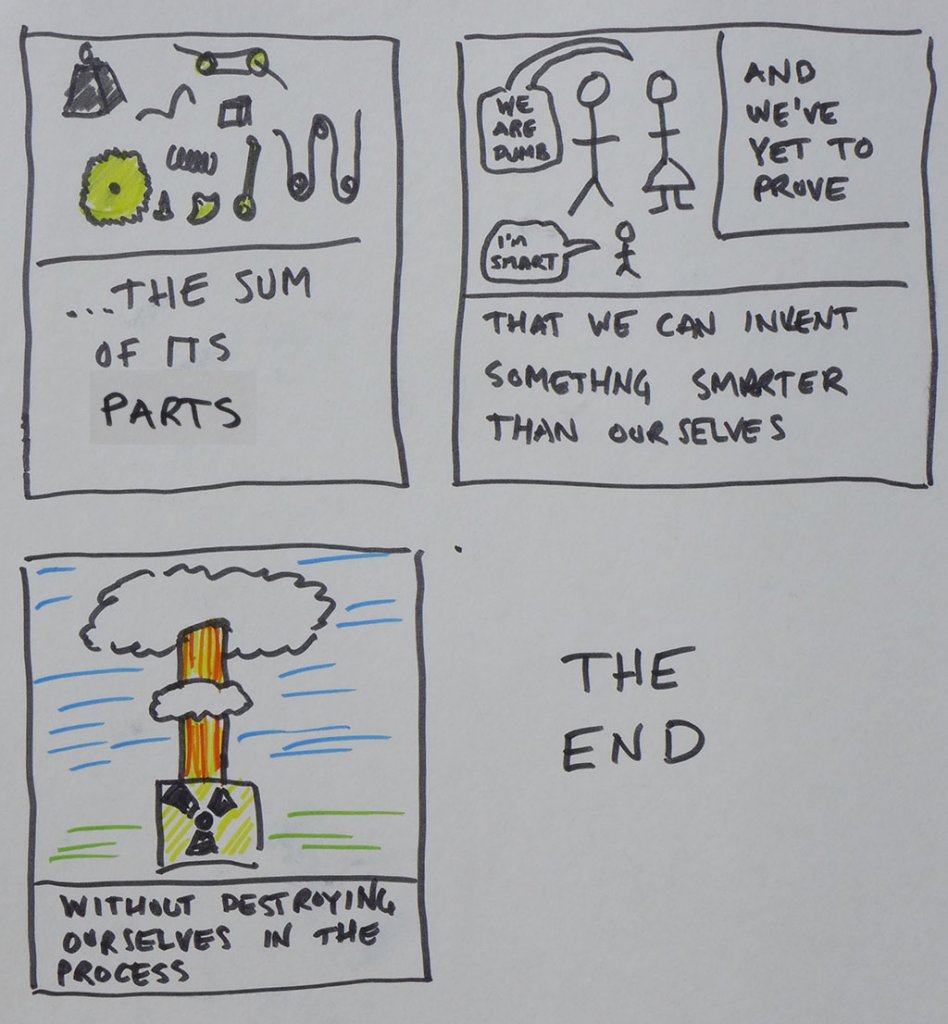 ...THE SUM
OF ITS
PARTS
WE
ARE
DUMB
AND
WE'VE
YET TO
PROVE
I'M
SMART
THAT WE CAN INVENT
SOMETHNG SMARTER
THAN OURSELVES
WITHOUT DESTROYING
OURSELVES IN THE
PROCESS
THE
END